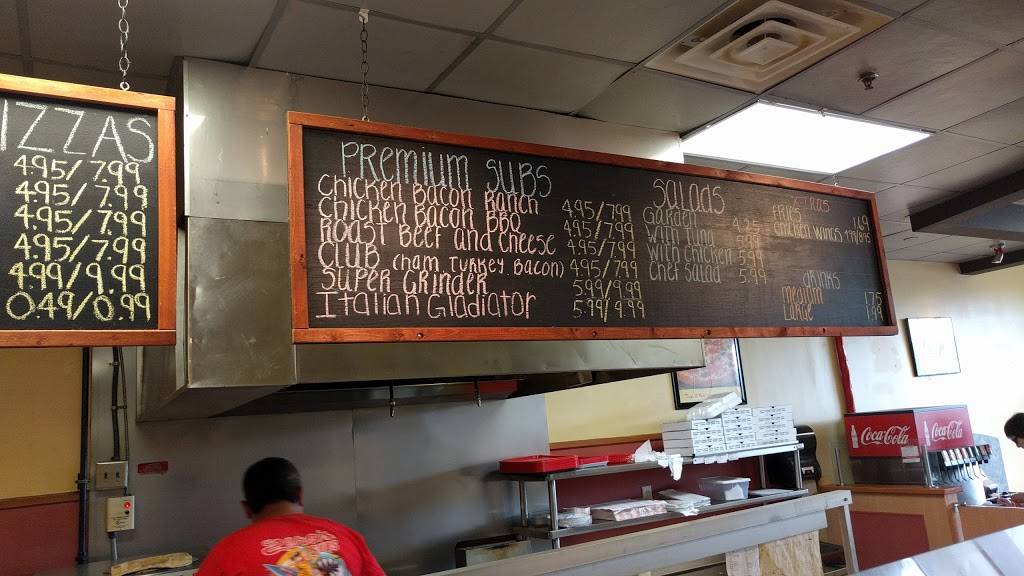 IZZAS
4.95/7.99
4.95/7.99
4.95/7.99
4.95/7.99
4.99/9.99
0.49/0.99
PREMIUM SUBS
Chicken Bacon Ranch 4.95/7.99
Chicken Bacon BBQ 4.95/7.99
Roast Beef and Cheese 4.95/7.99
CLUB (Ham Turkey Bacon) 4.95/7.99
Super Grinder 5.99/9.99
Italian Gladiator 5.99/9.99
Salads
Garden
With Tuna
With Chicken 5.99
Chef Salad 5.99
Fries 1.69
Chicken Wings
Drinks
Medium 1.75
Large 1.99
Coca-Cola
Coca-Cola